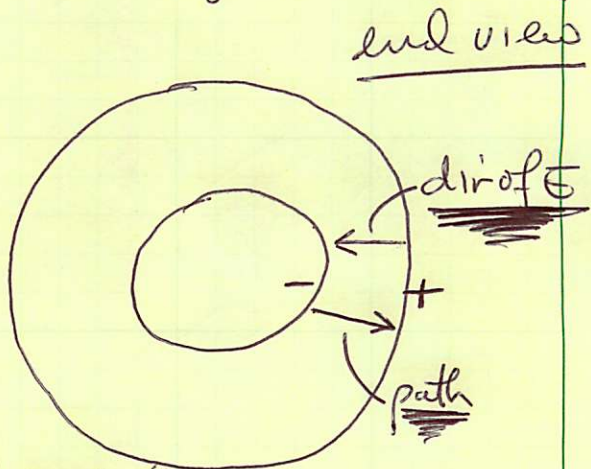 end view
dir of E
- +
path